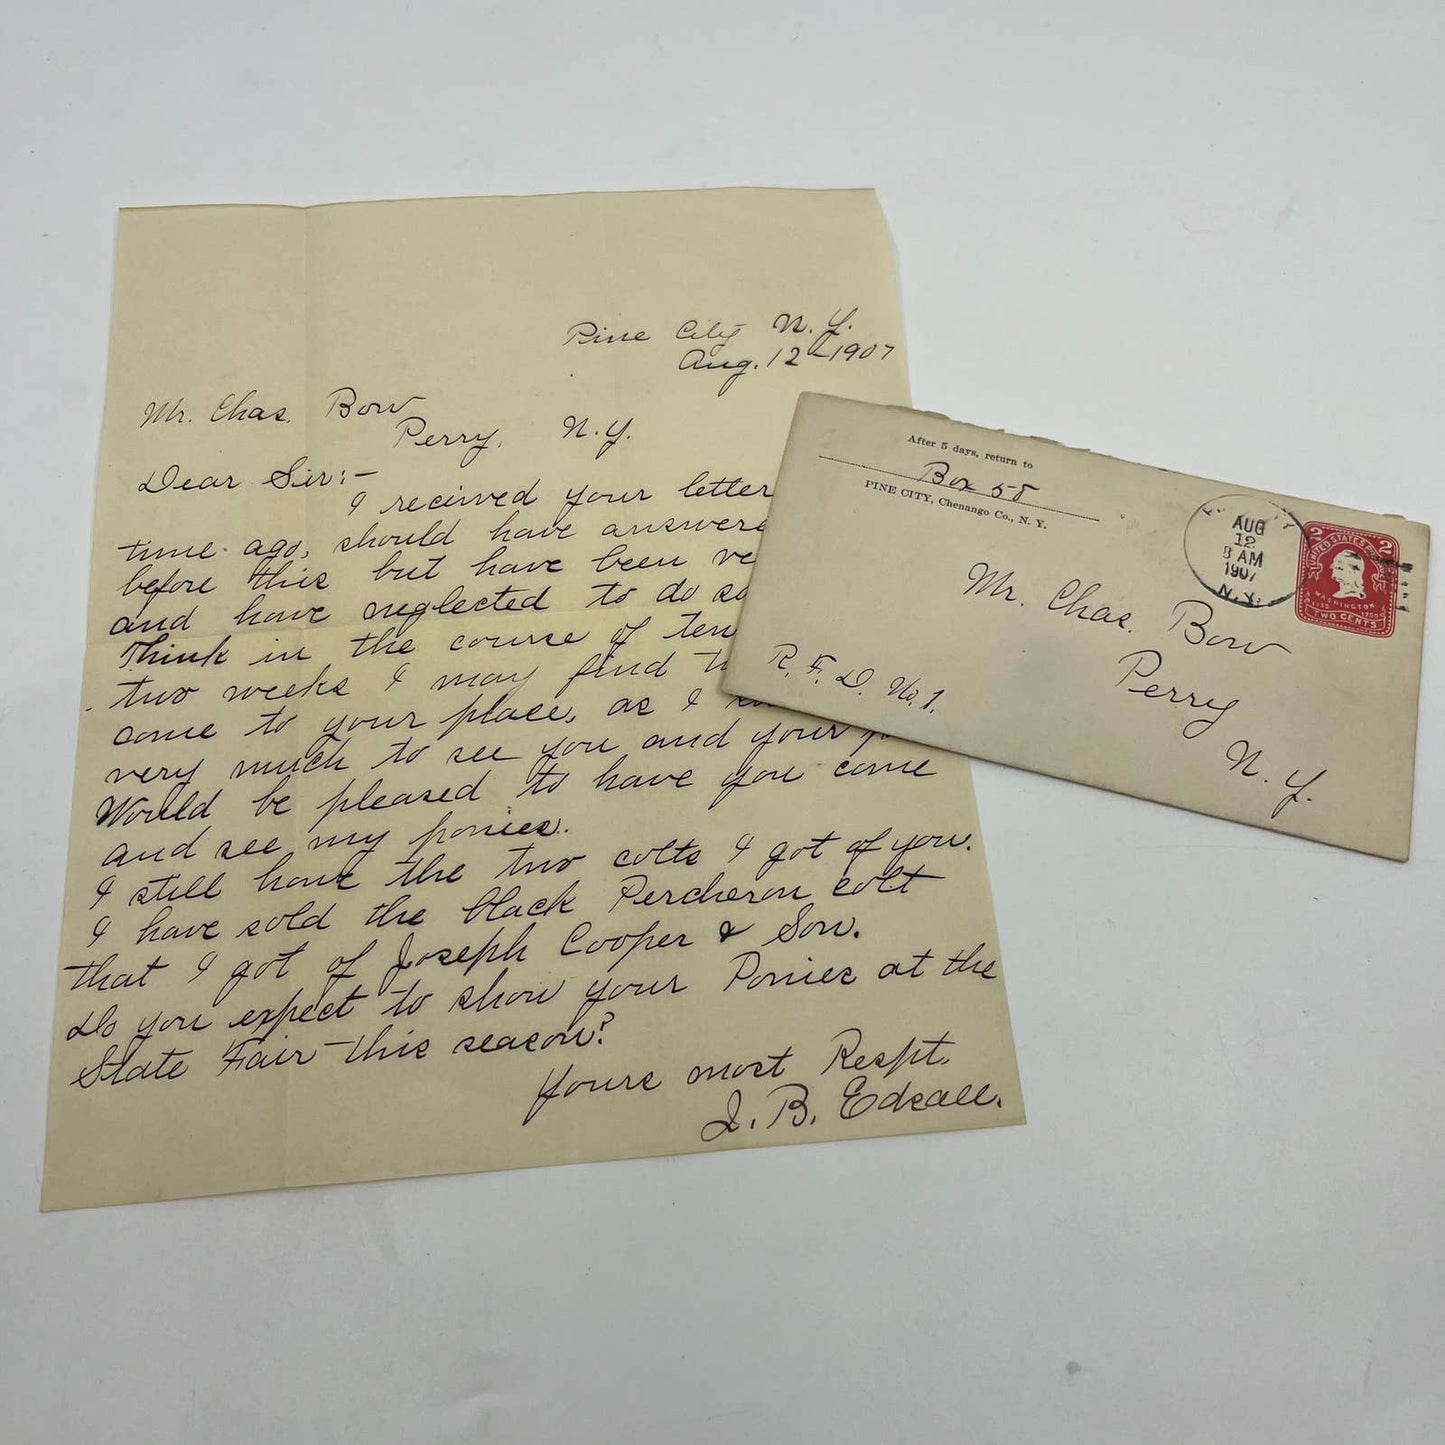 Pine City N.Y.
Aug. 12 - 1907
Mr. Chas. Bow
Perry, N.Y.
Dear Sir:-
I recieved your letter
time ago, should have answere
before this but have been ve
and have neglected to do so
Think in the course of ten
two weeks I may find t
come to your place, as I
very much to see you and your
Would be pleased to have you come
and see my ponies.
I still have the two colts I got of you.
I have sold the black Percheron colt
that I got of Joseph Cooper & Son.
Do you expect to show your Ponies at the
State Fair this season?
Yours most Respt.
J. B. Edsall.
After 5 days, return to
Box 58
PINE CITY, Chenango Co., N. Y.
AUG
12
8 AM
1907
N.Y.
2 UNITED STATES 2
WASHINGTON
TWO CENTS
Mr. Chas. Bow
Perry
N.Y.
R. F. D. No. 1.